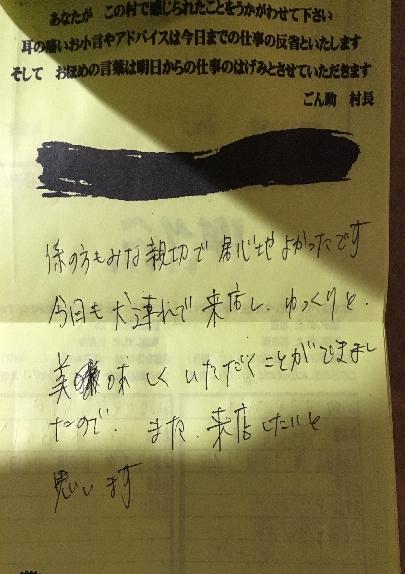 あなたが この村で感じられたことをうかがわせて下さい
耳の痛いお小言やアドバイスは今日までの仕事の反省といたします
そして おほめの言葉は明日からの仕事のはげみとさせていただきます
ごん助 村長
係の方もみな親切で居心地よかったです
今回も犬連れで来店し、ゆっくりと、
美味しくいただくことができまし
たので、また、来店したいと
思います